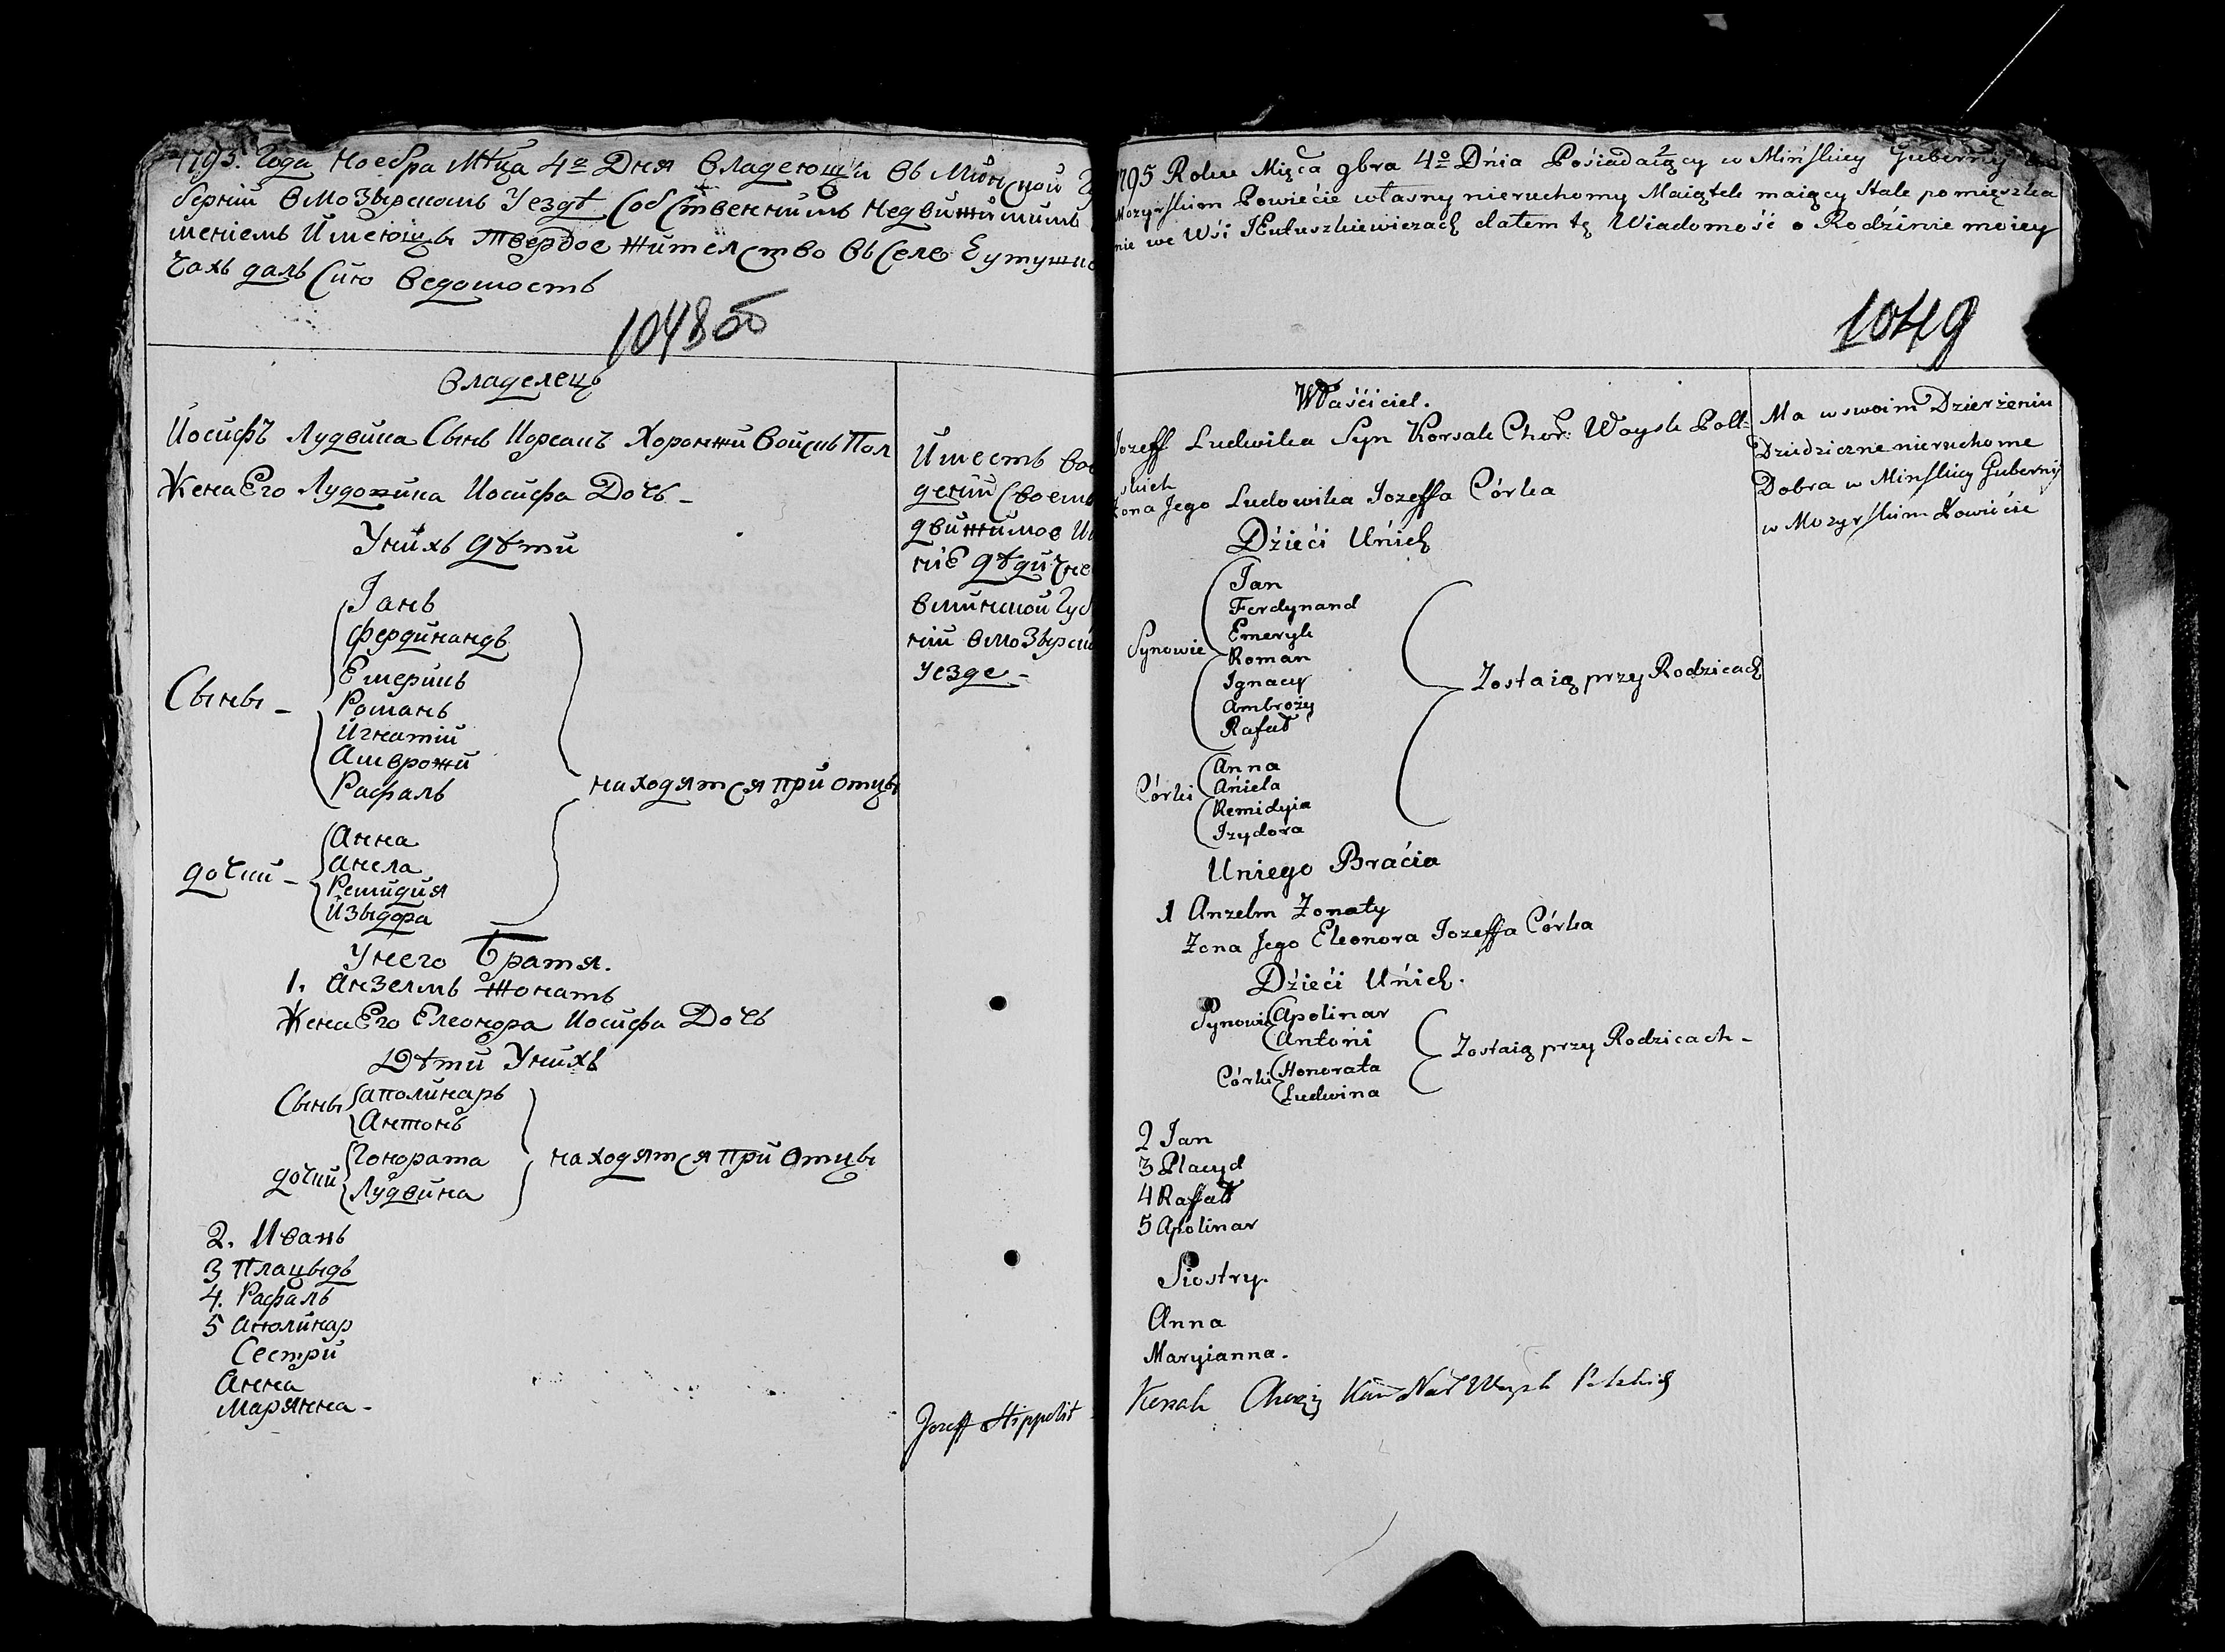 1795. Года Ноебра Мѣца 4го Дня владеющи въ Минской Гу
берніи вмозырскомъ Уездѣ Собственнимъ Недвижимимъ
меніемъ Имеющы Твердое жителство въ Селе Еутушке
чахъ далъ Сию Ведомость
1048об
владелецъ
Иосифъ Лудвика Сынъ Корсакъ Хоронжи Воискъ Пол
Жена Его Лудовика Иосифа Дочъ -
Унихъ дѣти
Іанъ
Фердинандъ
Емерикъ
Сыны -
Романъ
Игнатіи
Амврожи
Рафалъ
находятся при отцы
дочки -
Анна
Анела
Ремидия
Изыдора
Унего Братя.
1. Анзелмъ Жонатъ
Жена Его Елеонора Иосифа Дочъ
Дѣти Унихъ
Сыны
Аполинаръ
Антонъ
дочки
Гонората
Лудвика
находятся при Отцы
2. Иванъ
3 Плацыдъ
4. Рафалъ
5 Аполинар
Сестри
Анна
Марянна -
Имеетъ во
дении Своемъ
движимое И
ніе дѣдичне
вминской Губ
ніи вмозырск
уезде -
Jozeff Hippolit
1795 Roku Mięca 9bra 4o Dnia Pośiadaiący w Mińskiey Guberny
Mozyrskim Powiećie własny nieruchomy Maiątek maiący Stałe pomięszka
nie we Wśi JEutuszkiewiczach dałem tę Wiadomość o Rodźinie moiey
1049
Właśćiciel.
Jozeff Ludwika Syn Korsak Chor: Woysk Pol-
skich
Zona Jego Ludowika Jozeffa Córka
Dźieći Unich
Jan
Ferdynand
Emeryk
Synowie
Roman
Jgnacy
Ambroży
Rafał
Zostaią przy Rodzicach
Córki
Anna
Aniela
Remidyia
Jzydora
Uniego Braćia
1 Anzelm Zonaty
Zona Jego Eleonora Jozeffa Córka
Dźieći Unich.
Synowie
Apolinar
Antoni
Córki
Honorata
Ludwina
Zostaią przy Rodzicach -
2 Jan
3 Placyd
4 Raffał
5 Apolinar
Siostry.
Anna
Maryianna.
Korsak Chorąży Kaw Nar Woysk Polskich
Ma w swoim Dzierżeniu
Dziedziczne nieruchome
Dobra w Mińskiey Guberny
w Mozyrskim Powiećie